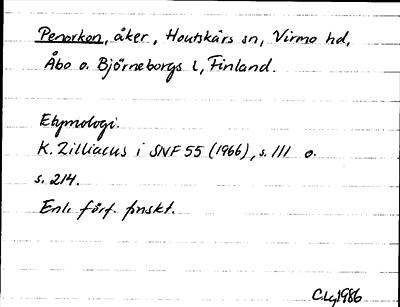 Penorkon, åker, Houtskärs sn, Virmo hd,
Åbo o. Björneborgs l, Finland.
Etymologi.
K. Zilliacus i SNF 55 (1966), s. 111 o.
s. 214.
Enl. förf. finskt.
C.Lg 1986